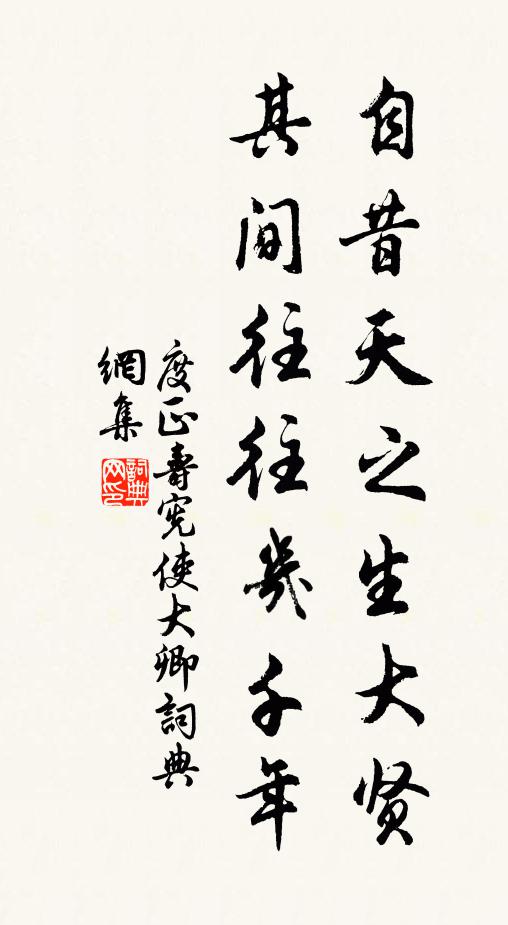 自昔天之生大贤
其间往往几千年
度正壽宪使大卿詞典
網集
詞典网印